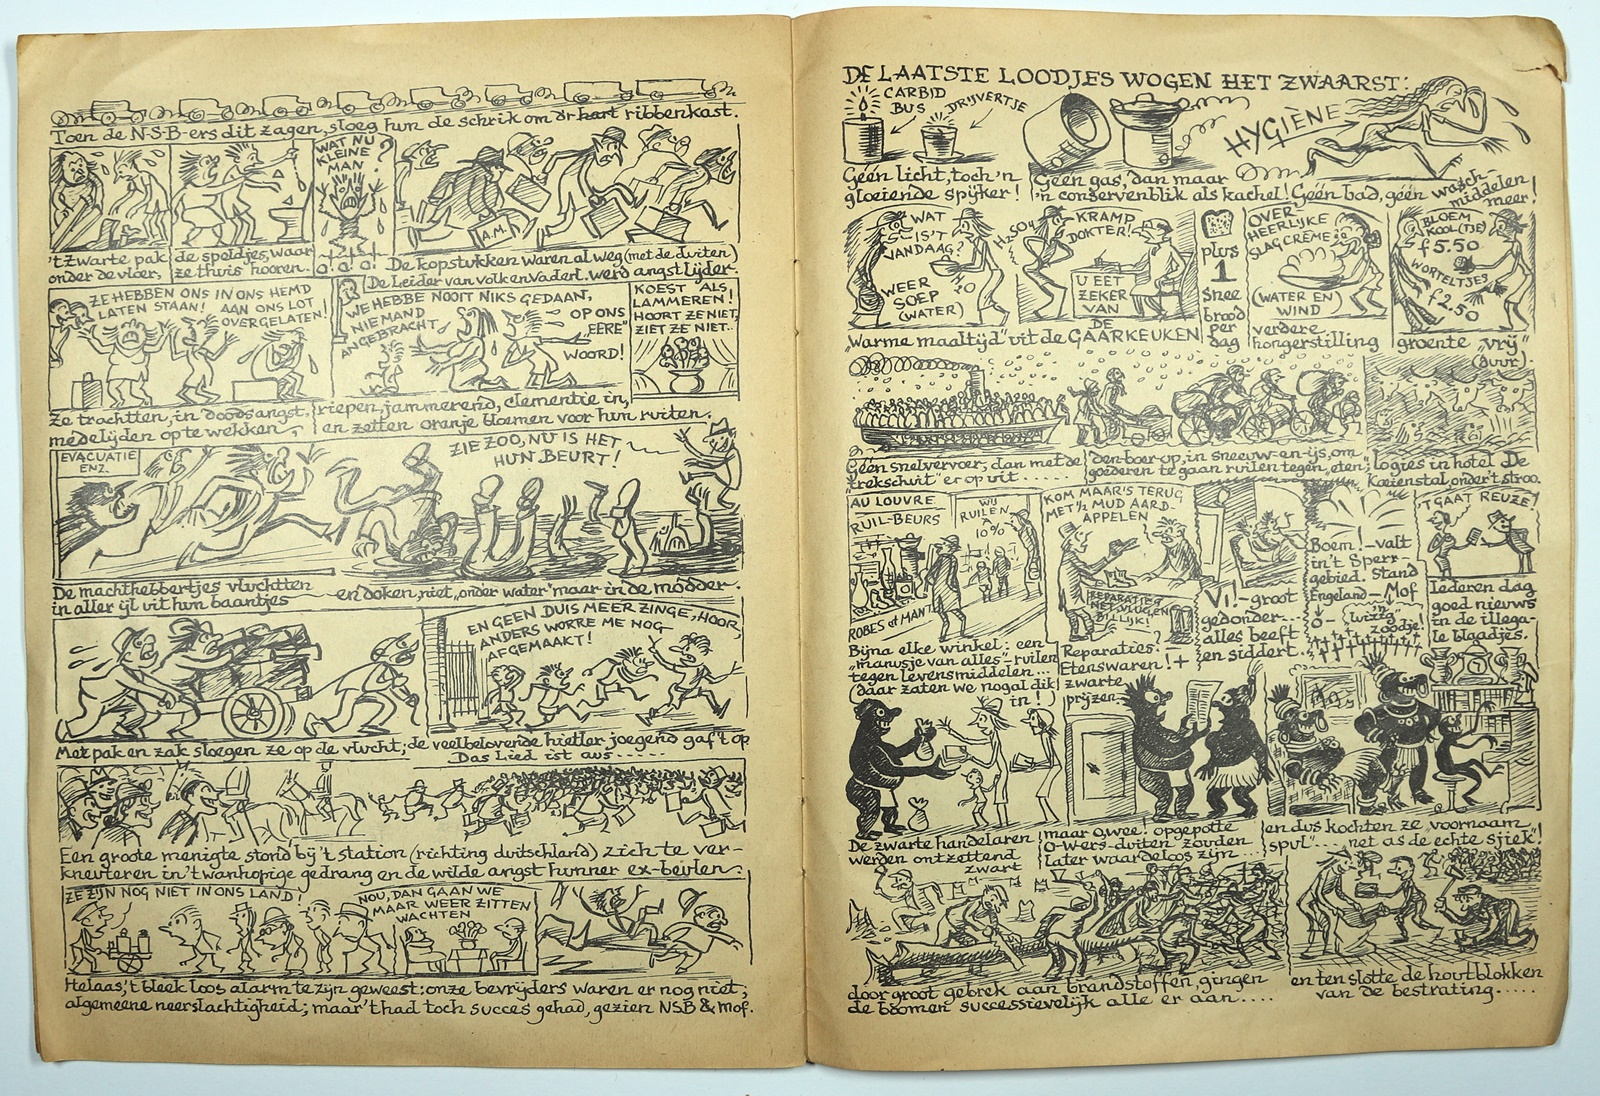 Toen de N-S-B-ers dit zagen, sloeg hun de schrik om dr hart ribbenkast.
WAT NU
KLEINE
MAN ?
A.M.
't zwarte pak
onder de vloer,
de speldjes, waar
ze thuis hooren.
De kopstukken waren al weg (met de duiten)
De Leider van volk en vaderl. werd angstlijder
ZE HEBBEN ONS IN ONS HEMD
LATEN STAAN!
AAN ONS LOT
OVERGELATEN!
WE HEBBE NOOIT NIKS GEDAAN,
NIEMAND
ANGEBRACHT
OP ONS
„EERE"
WOORD!
KOEST ALS
LAMMEREN!
HOORT ZE NIET,
ZIET ZE NIET..
Ze trachtten, in doodsangst,
medelijden op te wekken
riepen, jammerend, clementie in,
en zetten oranje bloemen voor hun ruiten.
EVACUATIE
ENZ.
ZIE ZOO, NU IS HET
HUN BEURT!
De machthebbertjes vluchtten
in aller ijl uit hun baantjes
en doken, niet „onder water" maar in de modder.
EN GEEN DUIS MEER ZINGE, HOOR,
ANDERS WORRE ME NOG
AFGEMAAKT!
Met pak en zak sloegen ze op de vlucht; de veelbelovende hietler joegend gaf't op
Das Lied ist aus...
Een groote menigte stond bij 't station (richting duitschland) zich te ver-
kneuteren in 't wanhopige gedrang en de wilde angst hunner ex-beulen.
ZE ZIJN NOG NIET IN ONS LAND!
NOU, DAN GAAN WE
MAAR WEER ZITTEN
WACHTEN
Helaas, 't bleek loos alarm te zijn geweest: onze bevrijders waren er nog niet;
algemeene neerslachtigheid; maar 't had toch succes gehad, gezien NSB & mof.
DE LAATSTE LOODJES WOGEN HET ZWAARST:
CARBID
BUS
DRIJVERTJE
HYGIËNE
Géén licht, toch 'n
gloeiende spijker!
Géén gas, dan maar
'n conservenblik als kachel!
Géén bad, géén wasch-
middelen
meer!
WAT
IS 'T
VANDAAG?
WEER
SOEP
(WATER)
H₂SO₄
KRAMP
DOKTER!
U EET
ZEKER
VAN
DE
„Warme maaltijd" uit de GAARKEUKEN
plus
1
snee
brood
per
dag
OVER
HEERLIJKE
SLAGCRÈME
(WATER EN
WIND)
verdere
hongerstilling
BLOEM
KOOL(TJE)
f 5.50
WORTELTJES
f 2.50
groente „vrij"
(duur).
Géén snelvervoer; dan met de
„trekschuit" er op uit.....
den-boer-op, in sneeuw-en-ijs, om
goederen te gaan ruilen tegen „eten";
logies in hotel De
Koeienstal, onder 't stroo.
AU LOUVRE
RUIL-BEURS
WIJ
RUILEN
À
10%
ROBES et MANT
Bijna elke winkel: een
„manusje van alles"-ruilen
tegen levensmiddelen...
(daar zaten we nogal dik
in!)
KOM MAAR 'S TERUG
MET ½ MUD AARD-
APPELEN
REPARATIES
NET, VLUG EN
BILLIJK!
Reparaties =
Etenswaren! +
zwarte
prijzen.
V1!-groot
gedonder...
alles beeft
en siddert.
Boem!-valt
in 't Sperr-
gebied. Stand
Engeland - Mof
0 -
'n zoodje!
'T GAAT REUZE!
Iederen dag
goed nieuws
in de illega-
le blaadjes.
De zwarte handelaren
werden ontzettend
zwart
maar o, wee! opgepotte
O-W-ers-duiten zouden
later waardeloos zijn
en dus kochten ze „voornaam
spul"... net as de echte sjiek"!
door groot gebrek aan brandstoffen, gingen
de boomen successievelijk alle er aan....
en ten slotte de houtblokken
van de bestrating.....